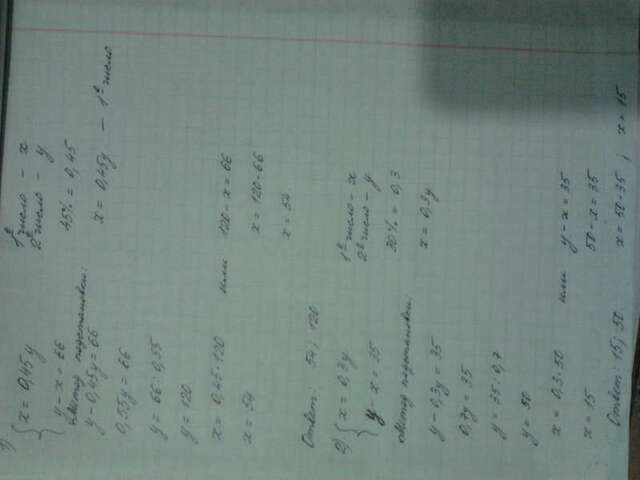 1) { x = 0,45y
y - x = 66
1ᵉ число - x
2ᵉ число - y
45% = 0,45
x = 0,45y - 1ᵉ число
Метод подстановки:
y - 0,45y = 66
0,55y = 66
y = 66 : 0,55
y = 120
x = 0,45·120 или 120 - x = 66
x = 54
x = 120-66
x = 54
Ответ: 54; 120
2) { x = 0,3y
y - x = 35
1ᵉ число - x
2ᵉ число - y
30% = 0,3
x = 0,3y
Метод подстановки:
y - 0,3y = 35
0,7y = 35
y = 35 : 0,7
y = 50
x = 0,3·50 или y - x = 35
x = 15
50 - x = 35
Ответ: 15; 50
x = 50-35; x = 15